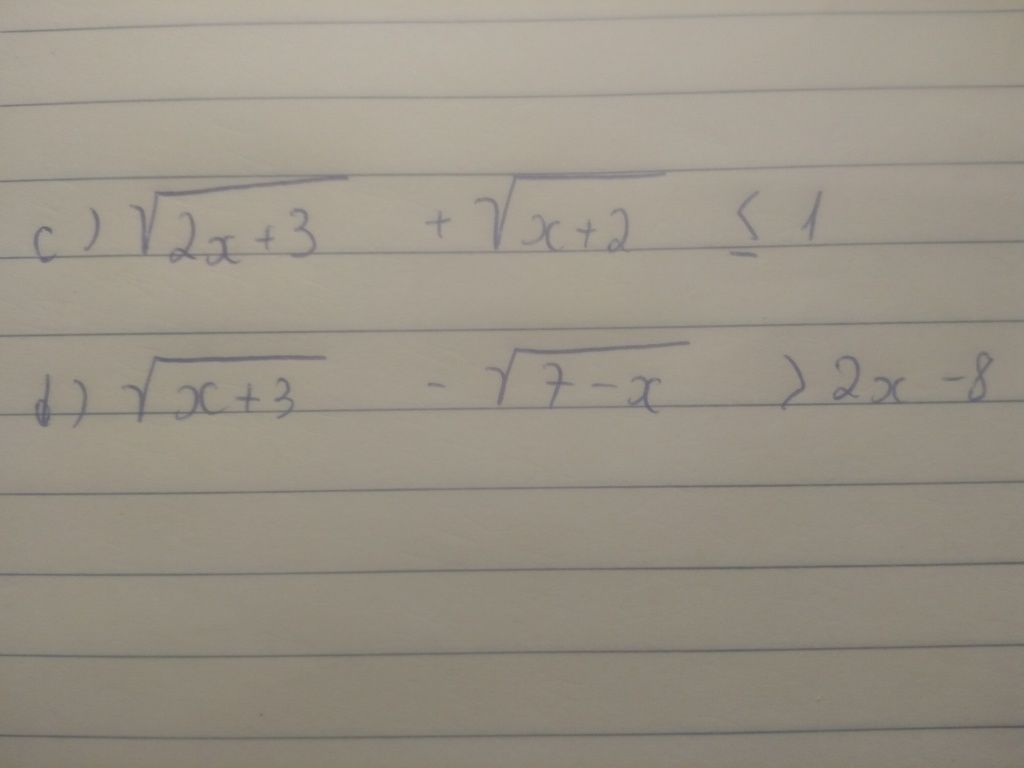 c) √(2x+3) + √(x+2) ≤ 1
d) √(x+3) - √(7-x) > 2x-8